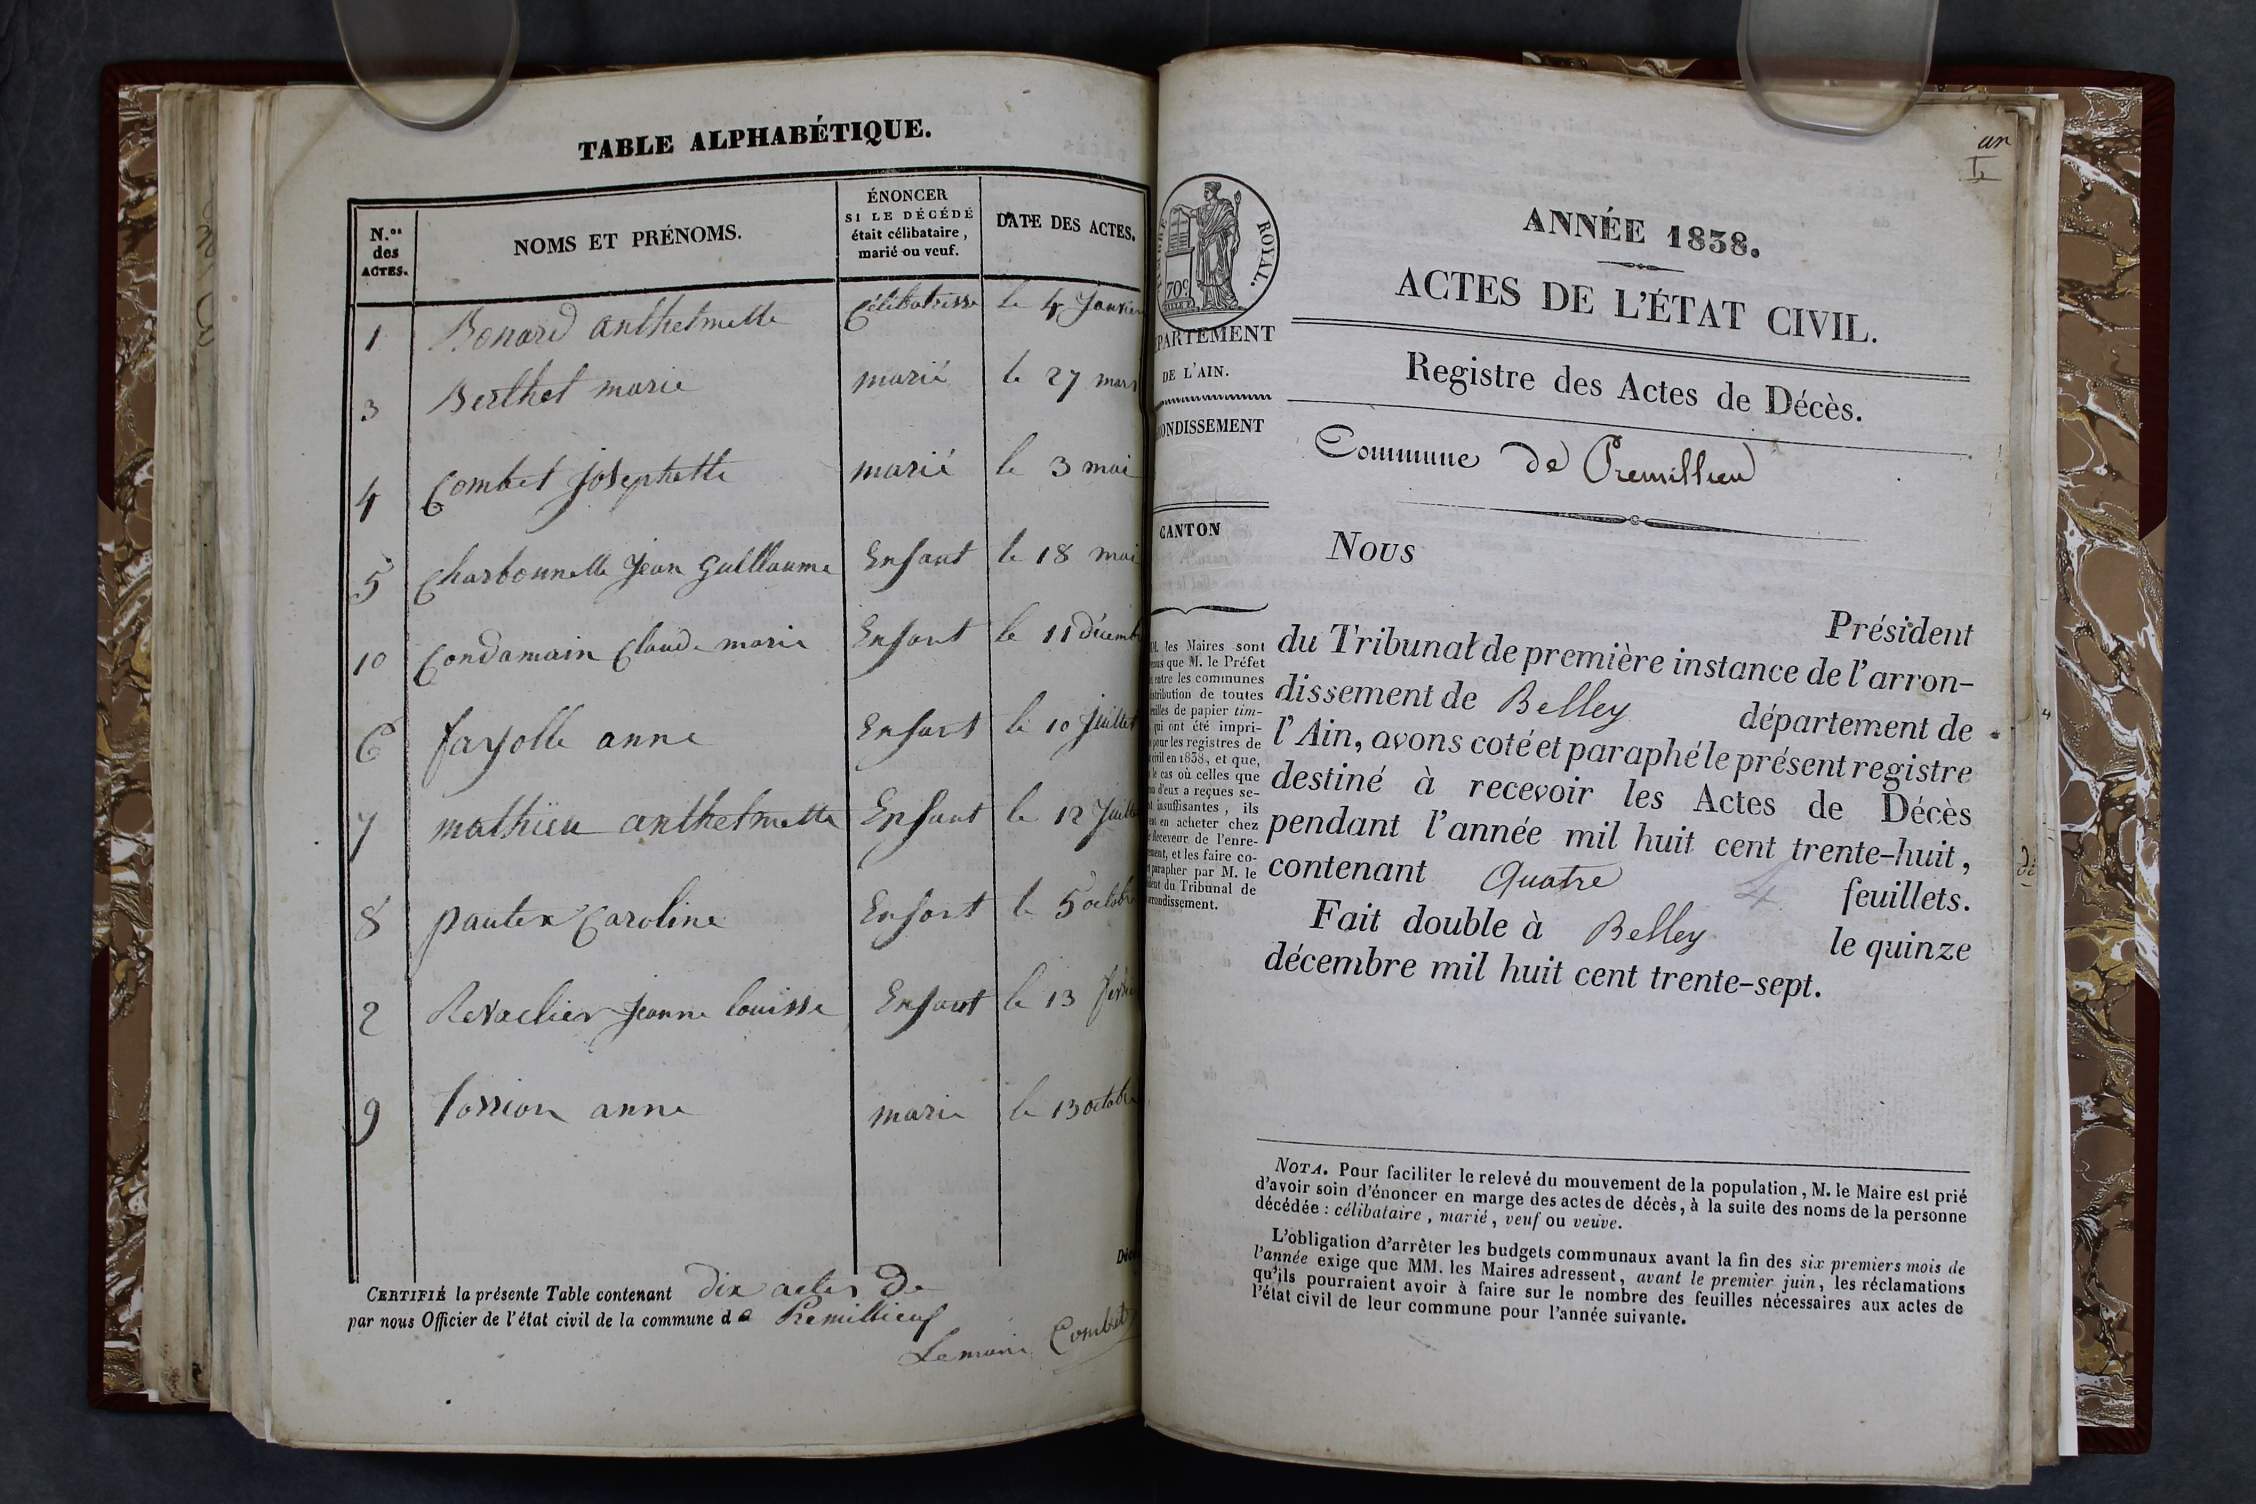 TABLE ALPHABÉTIQUE.
N.os des ACTES.
NOMS ET PRÉNOMS.
ÉNONCER
SI LE DÉCÉDÉ
était célibataire,
marié ou veuf.
DATE DES ACTES.
1 Bonard anthelmette Célibataisse le 4 Janvier
3 Berthet marie marié le 27 mars
4 Combet josephette marié le 3 mai
5 Charbonnelle jean guillaume Enfant le 18 mai
10 Condamain Claude marie Enfant le 11 décemb
6 fayolle anne Enfant le 10 Juillet
7 mathieu anthelmette Enfant le 12 Juill
8 pautex Caroline Enfant le 5 octobre
2 Revaclier jeanne louisse Enfant le 13 févr
9 anne marie le 13 octobre
CERTIFIÉ la présente Table contenant dix actes De
par nous Officier de l'état civil de la commune de Premillieux
Le maire Combet
un
1
TIMBRE ROYAL.
70c
ANNÉE 1838.
ACTES DE L'ÉTAT CIVIL.
PARTEMENT
DE L'AIN.
Registre des Actes de Décès.
ONDISSEMENT
Commune de Premillieu
CANTON
Nous
Président
du Tribunal de première instance de l'arron-
dissement de Belley département de
l'Ain, avons coté et paraphé le présent registre
destiné à recevoir les Actes de Décès
pendant l'année mil huit cent trente-huit,
contenant Quatre 4 feuillets.
Fait double à Belley le quinze
décembre mil huit cent trente-sept.
les Maires sont
que M. le Préfet
entre les communes
distribution de toutes
feuilles de papier tim-
qui ont été impri-
pour les registres de
civil en 1838, et que,
le cas où celles que
d'eux a reçues se-
insuffisantes, ils
en acheter chez
Receveur de l'enre-
et les faire co-
parapher par M. le
du Tribunal de
arrondissement.
NOTA. Pour faciliter le relevé du mouvement de la population, M. le Maire est prié
d'avoir soin d'énoncer en marge des actes de décès, à la suite des noms de la personne
décédée : célibataire, marié, veuf ou veuve.
L'obligation d'arrêter les budgets communaux avant la fin des six premiers mois de
l'année exige que MM. les Maires adressent, avant le premier juin, les réclamations
qu'ils pourraient avoir à faire sur le nombre des feuilles nécessaires aux actes de
l'état civil de leur commune pour l'année suivante.